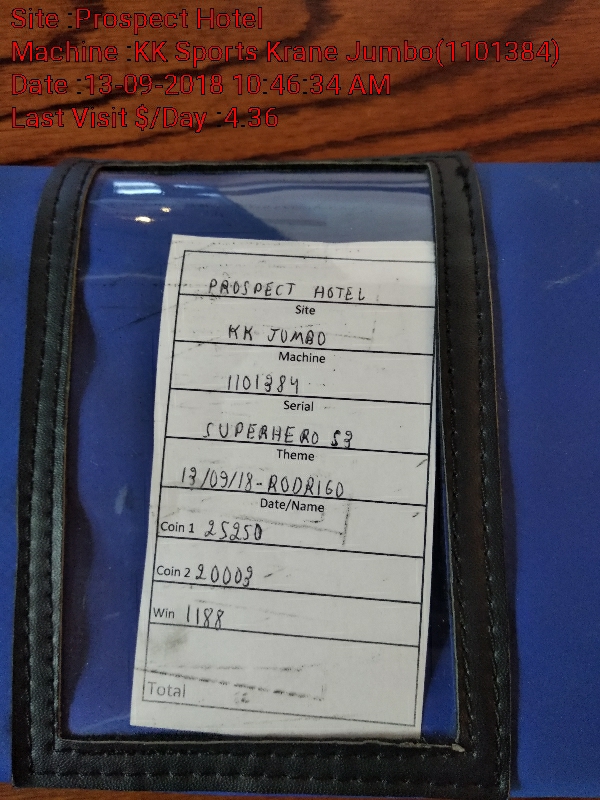 Site :Prospect Hotel
Machine :KK Sports Krane Jumbo(1101384)
Date :13-09-2018 10:46:34 AM
Last Visit $/Day :4.36
PROSPECT HOTEL
Site
KK JUMBO
Machine
1101384
Serial
SUPERHERO $3
Theme
13/09/18-RODRIGO
Date/Name
Coin 1 25250
Coin 2 20003
Win 1188
Total